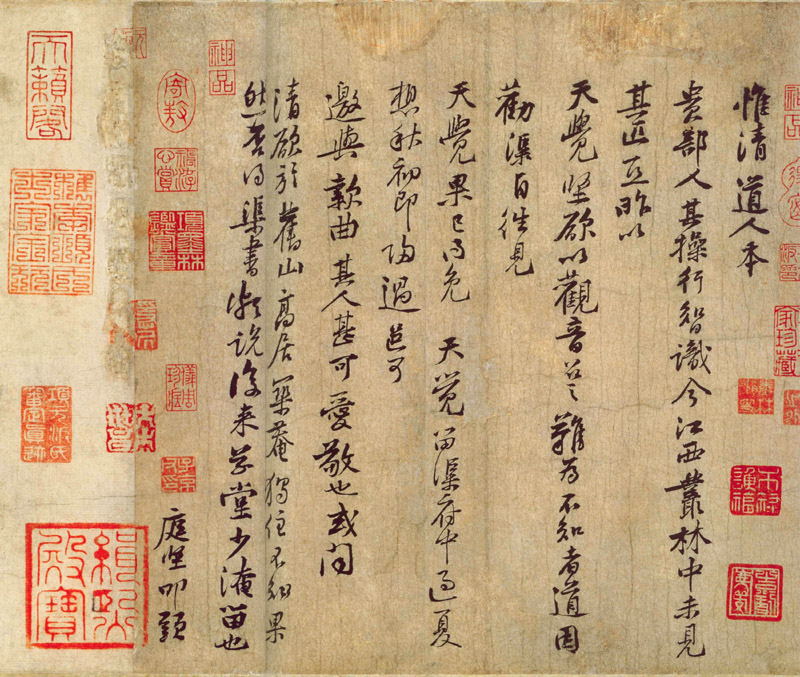 惟清道人本
貴部人其操行智識今江西叢林中未見
其匹亞昨以
天覺堅欲以觀音召之難為不知者道因
勸渠自往見
天覺果已得免 天覺留渠府中過夏
想秋初即歸過邑可
邀與款曲其人甚可愛敬也或聞
清欲於舊山高居築菴獨住不知果
然否得渠書頗說後來草堂少淹留也
庭堅叩頭
家珍藏
神品
天籟閣
緝熙殿寶